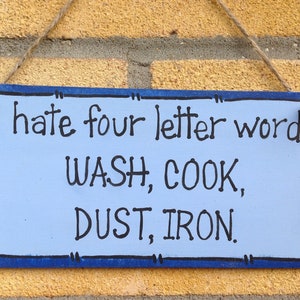 hate four letter word
WASH, COOK,
DUST, IRON.